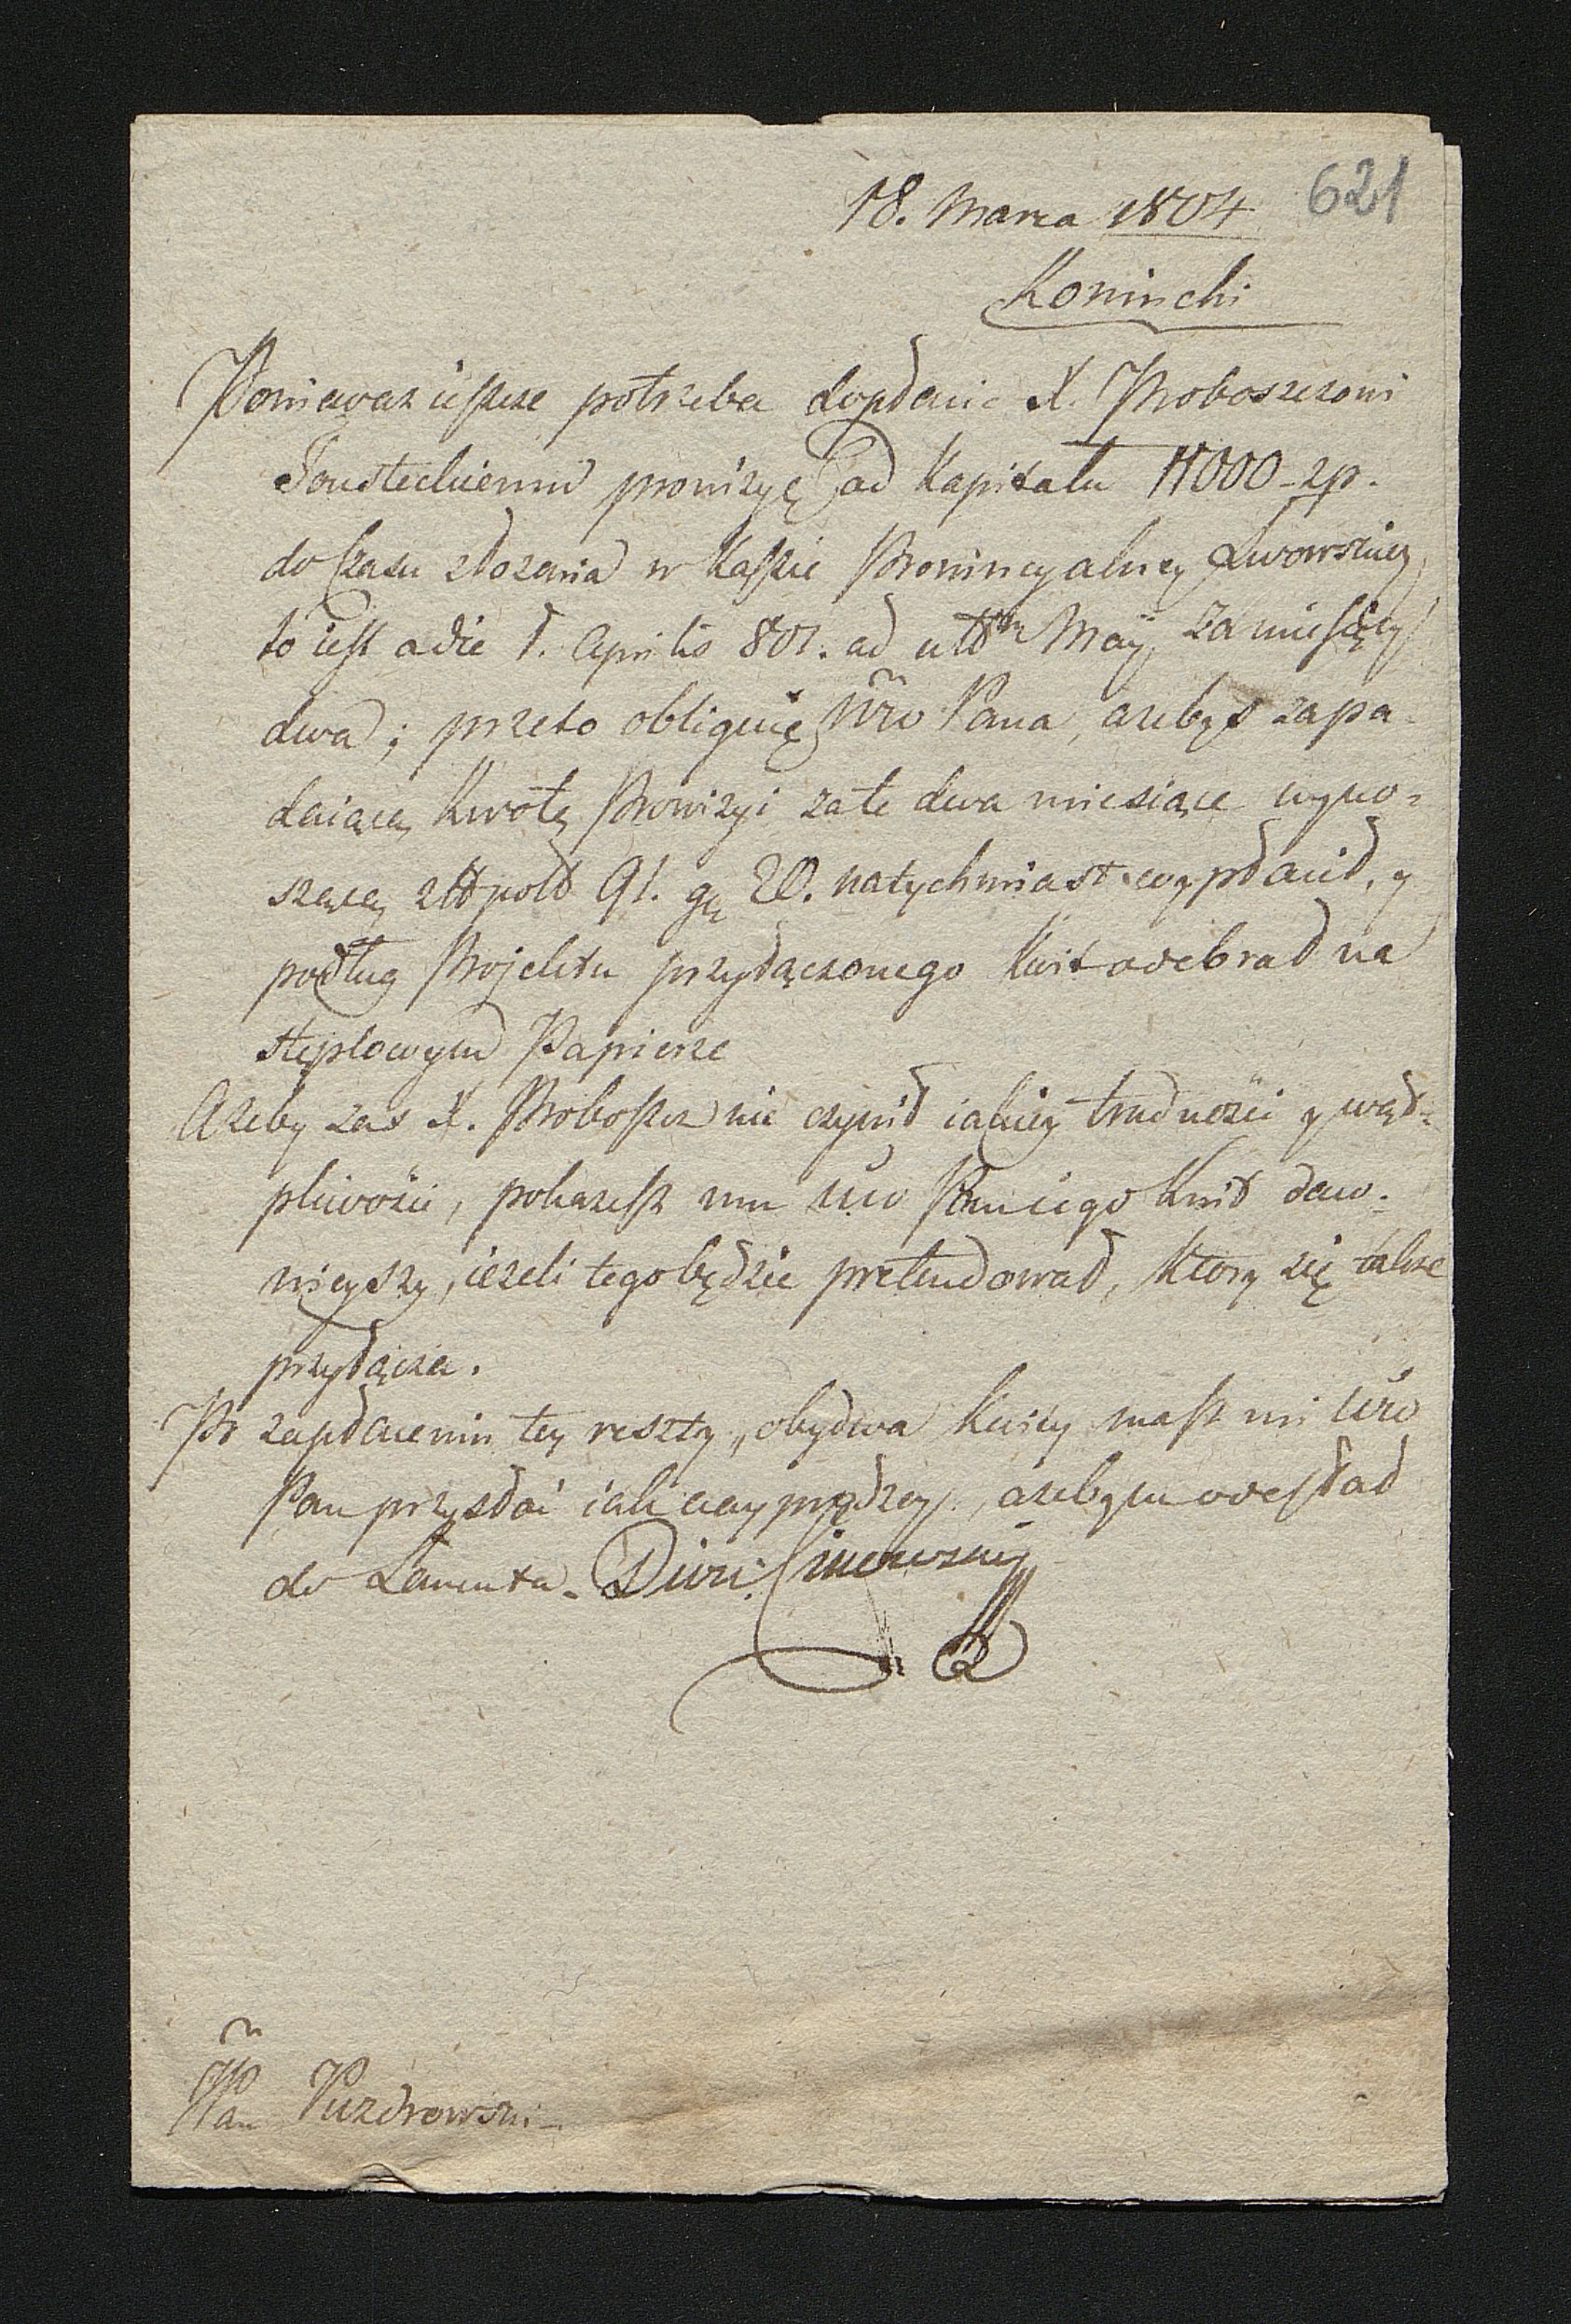 18. Marca 1804 621
Koninchi
Ponieważ ieszcze potrzeba dopłacić X. Proboszczowi
Tousteckiemu prowizyę od Kapitału 11000 - zp.
do Czasu złożenia w Kassie Prowincyalney Lwowskiey,
to iest a die 1. Aprilis 801. ad ult. May, za miesięcy
dwa; przeto obliguię Wo Pana, ażebyś zapa-
daiącą Kwotę Prowizyi za te dwa miesiące wyno-
szącą złł pold 91. gr 20. natychmiast wypłacił, y
podług Projektu przyłączonego Kwit odebrał na
stęplowym Papierze
Ażeby zaś X. Proboszcz nie czynił iakiey trudności y wąt-
pliwości, pokażesz mu Wo Pan iego Kwit daw-
nieyszy, ieżeli tego będzie pretendował, który się także
przyłącza.
Po zapłaceniu tey reszty, obydwa Kwity masz mi Wo
Pan przysłać iak nayprędzey, ażebym odesłał
do Lamenta.
Pan Puzdrowski